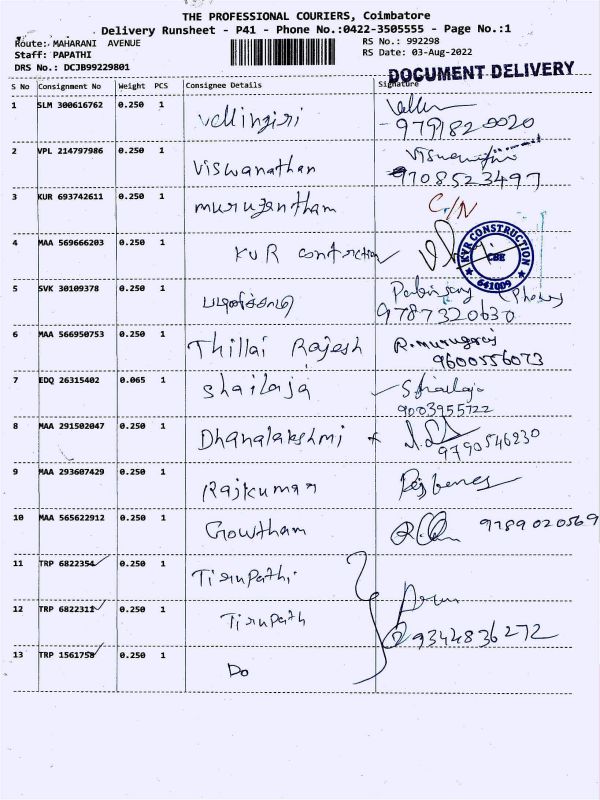 THE PROFESSIONAL COURIERS, Coimbatore
Delivery Runsheet - P41 - Phone No.:0422-3505555 - Page No.:1
Route: MAHARANI AVENUE RS No.: 992298
Staff: PAPATHI RS Date: 03-Aug-2022
DRS No.: DCJB99229801
DOCUMENT DELIVERY
S No Consignment No Weight PCS Consignee Details Signature
1 SLM 300616762 0.250 1 Vellingiri
9791820020
2 VPL 214797986 0.250 1 Viswanathan
9708523497
3 KUR 693742611 0.250 1 muruganantham C/N
4 MAA 569666203 0.250 1 KVR contrction
KVR CONSTRUCTION
CBE
641009
5 SVK 30109378 0.250 1 பழனிச்சாமி
9787320630
6 MAA 566950753 0.250 1 Thillai Rajesh R.murugaraj
9600556073
7 EDQ 26315402 0.065 1 shailaja Shailaja
9003955722
8 MAA 291502047 0.250 1 Dhanalakshmi
9790546230
9 MAA 293607429 0.250 1 Rajkumar
10 MAA 565622912 0.250 1 Gowtham 9789020569
11 TRP 6822354 0.250 1 Tirupathi
12 TRP 6822311 0.250 1 Tirupath
9344836272
13 TRP 1561758 0.250 1 Do